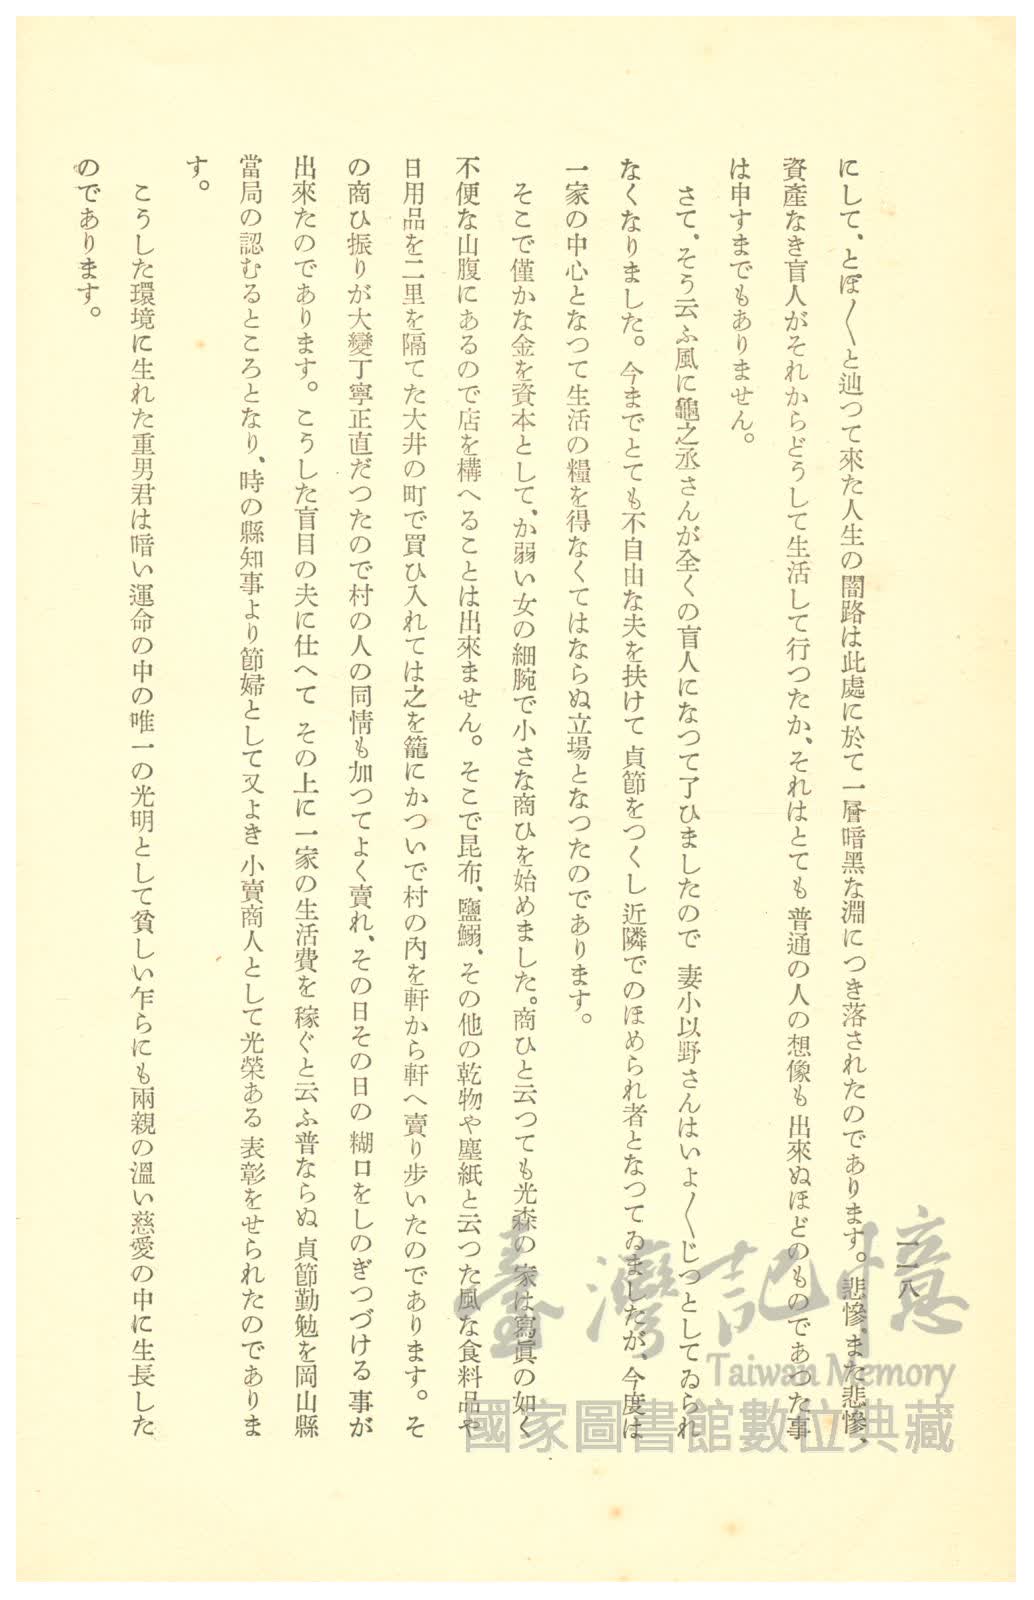 一一八
にして、とぼ〱と辿つて來た人生の闇路は此處に於て一層暗黑な淵につき落されたのであります。悲慘、また悲慘、
資產なき盲人がそれからどうして生活して行つたか、それはとても普通の人の想像も出來ぬほどのものであつた事
は申すまでもありません。
さて、そう云ふ風に龜之丞さんが全くの盲人になつて了ひましたので 妻小以野さんはいよ〱じつとしてゐられ
なくなりました。今までとても不自由な夫を扶けて 貞節をつくし近隣でのほめられ者となつてゐましたが、今度は
一家の中心となつて生活の糧を得なくてはならぬ立場となつたのであります。
そこで僅かな金を資本として、か弱い女の細腕で小さな商ひを始めました。商ひと云つても光森の家は寫眞の如く
不便な山腹にあるので店を構へることは出來ません。そこで昆布、鹽鰯、その他の乾物や塵紙と云つた風な食料品や
日用品を二里を隔てた大井の町で買ひ入れては之を籠にかついで村の內を軒から軒へ賣り步いたのであります。そ
の商ひ振りが大變丁寧正直だつたので村の人の同情も加つてよく賣れ、その日その日の糊口をしのぎつづける事が
出來たのであります。こうした盲目の夫に仕へて その上に一家の生活費を稼ぐと云ふ普ならぬ貞節勤勉を岡山縣
當局の認むるところとなり、時の縣知事より節婦として又よき小賣商人として光榮ある表彰をせられたのでありま
す。
こうした環境に生れた重男君は暗い運命の中の唯一の光明として貧しい乍らにも兩親の溫い慈愛の中に生長した
のであります。
臺灣記憶
Taiwan Memory
國家圖書館數位典藏